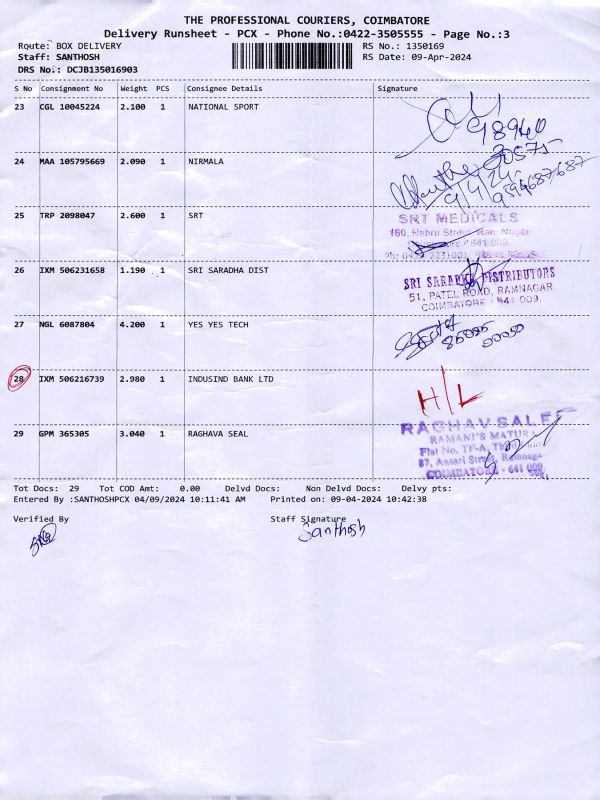 THE PROFESSIONAL COURIERS, COIMBATORE
Delivery Runsheet - PCX - Phone No.:0422-3505555 - Page No.:3
Route: BOX DELIVERY RS No.: 1350169
Staff: SANTHOSH RS Date: 09-Apr-2024
DRS No.: DCJB135016903
S No Consignment No Weight PCS Consignee Details Signature
23 CGL 10045224 2.100 1 NATIONAL SPORT
24 MAA 105795669 2.090 1 NIRMALA
9/4/24
25 TRP 2098047 2.600 1 SRT
SRT MEDICALS
160, Nehru Street, Ram Nagar
26 IXM 506231658 1.190 1 SRI SARADHA DIST
SRI SARADHA DISTRIBUTORS
51, PATEL ROAD, RAMNAGAR
COIMBATORE - 641 009.
27 NGL 6087804 4.200 1 YES YES TECH
28 IXM 506216739 2.980 1 INDUSIND BANK LTD
H/L
29 GPM 365305 3.040 1 RAGHAVA SEAL
RAGHAV SALES
RAMANI'S MATURA
Flat No. TF-A,
87, Ansari Street, Ramnagar
COIMBATORE - 641 009.
Tot Docs: 29 Tot COD Amt: 0.00 Delvd Docs: Non Delvd Docs: Delvy pts:
Entered By :SANTHOSHPCX 04/09/2024 10:11:41 AM Printed on: 09-04-2024 10:42:38
Verified By Staff Signature
Santhosh